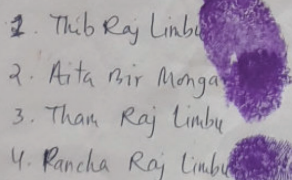 1. Thib Raj Limbu
2. Aita Bir Mongar
3. Tham Raj Limbu
4. Rancha Raj Limbu